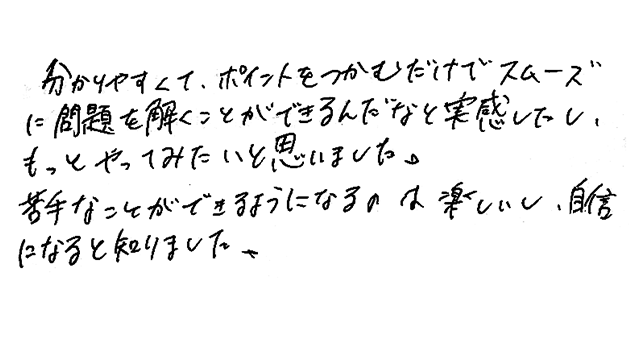 分かりやすくて、ポイントをつかむだけでスムーズ
に問題を解くことができるんだなと実感したし、
もっとやってみたいと思いました。
苦手なことができるようになるのは楽しいし、自信
になると知りました。